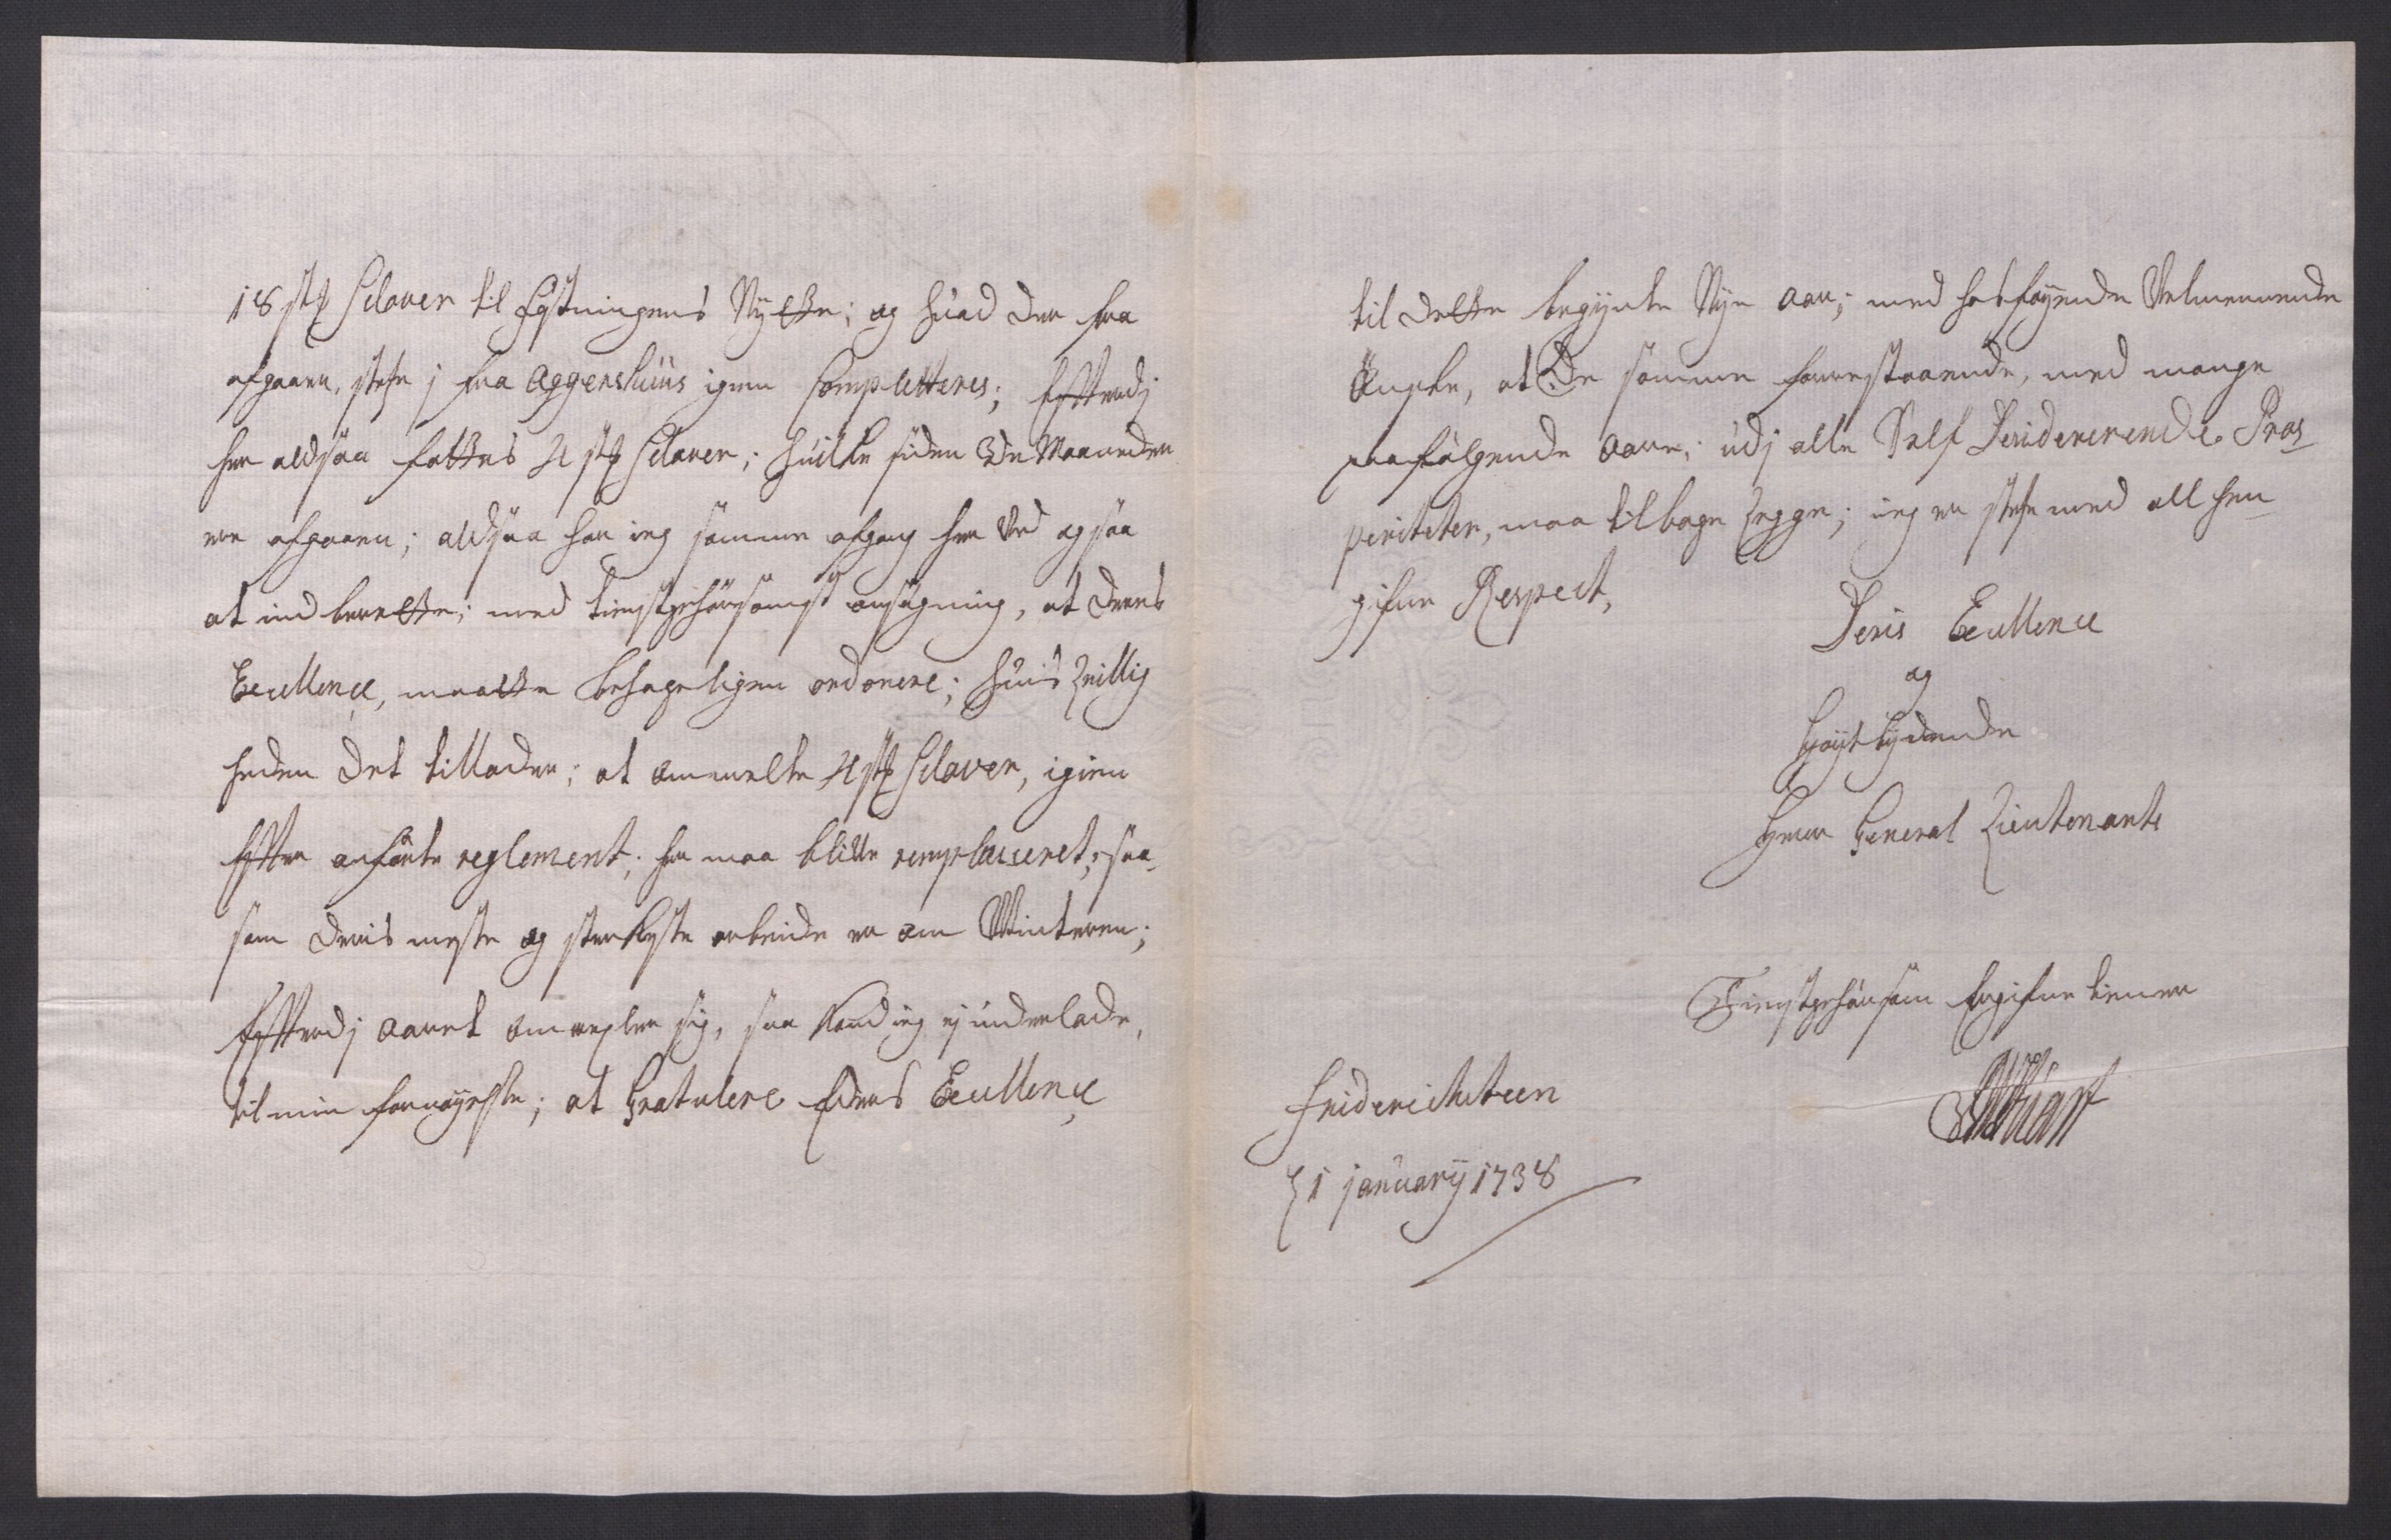 18 stk Sclaver til Festningens Nÿtte; og huad der fra
afgaaer, stetse j fra Aggershuus igien Completteres; Efftterdj
her aldsaa fattes 4 stk Sclaver; huilke siden Maaneden
ere afgaaen; aldsaa har ieg samme afgang her ved ogsaa
at ind berette; med tienstgehörsomst ansøgning, at deres
Excellence, maatte behageligen ordonere; huis Leillig
heden det tillader; at ommelte 4 stk Sclaver, igien
Effter anførte reglement; her maa blive remplacceret; saa-
som deris meste og sterkeste arbeide er om Winteren;
Efftterdj aaret om vexler sig, saa kand ieg ej underlade,
til min fornøyelse; at Gratulere Eders Excellence
til dette begÿnte Nÿe aar; med hosføyende Velmeenende
Ønske, at De samme forrestaaende, med mange
paafølgende aarer; udj alle Self Desidererende Pros-
periteter, maa tilbage Legge; ieg er stetse med all hen-
gifne Respect,
Deris Excellence
og
Høyt bÿdende
Herr General Lieutenants
Tienstgehörsom hengifne tiener
Friderichsteen
1 januarÿ 1738